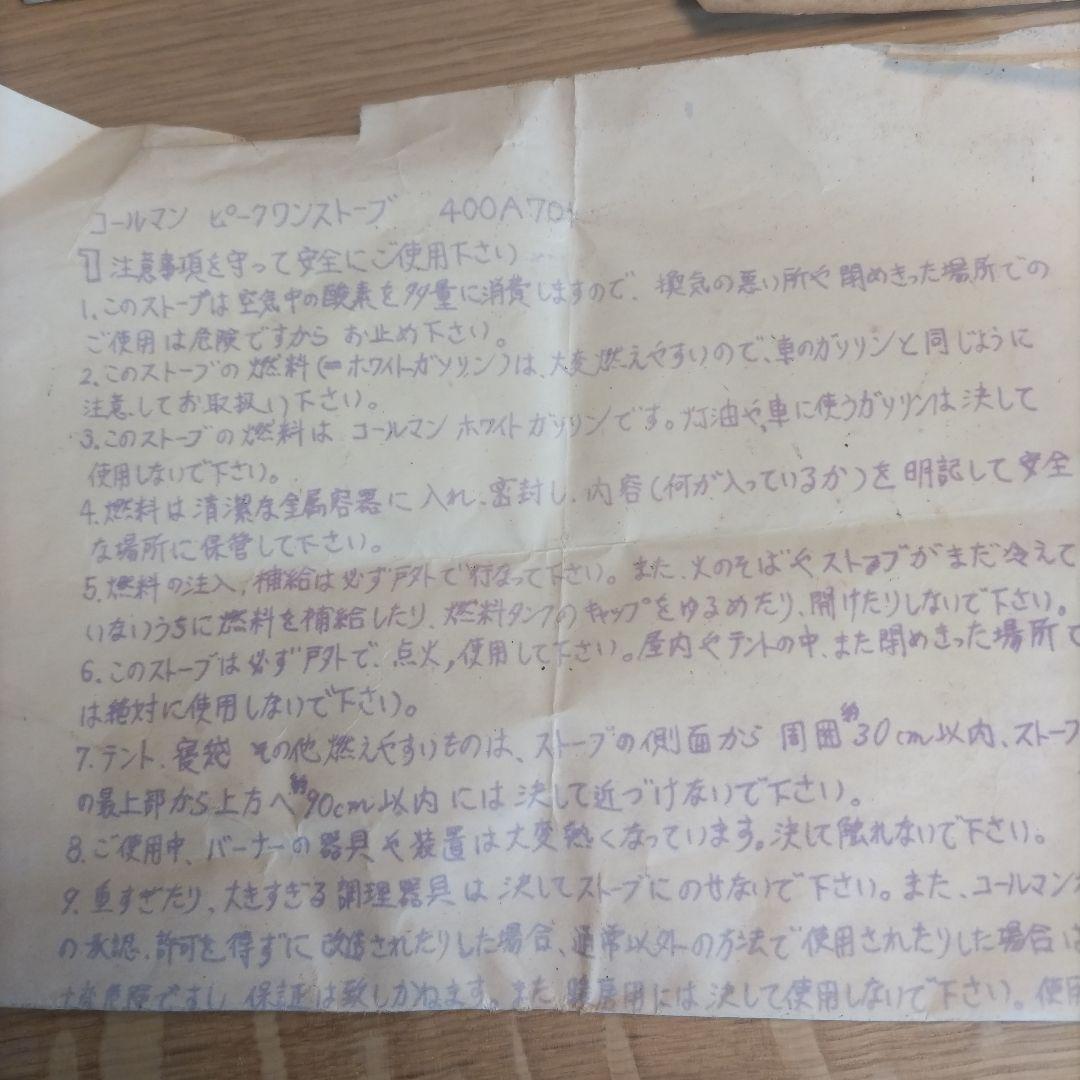 コールマン ピークワンストーブ 400A70
1 注意事項を守って安全にご使用下さい
1. このストーブは空気中の酸素を多量に消費しますので、換気の悪い所や閉めきった場所での
ご使用は危険ですから お止め下さい。
2. このストーブの燃料(=ホワイトガソリン)は、大変燃えやすいので、車のガソリンと同じように
注意してお取扱い下さい。
3. このストーブの燃料は コールマン ホワイトガソリンです。灯油や、車に使うガソリンは決して
使用しないで下さい。
4. 燃料は清潔な金属容器に入れ、密封し、内容(何が入っているか)を明記して安全
な場所に保管して下さい。
5. 燃料の注入, 補給は必ず戸外で行なって下さい。また、火のそばやストーブがまだ冷えて
いないうちに燃料を補給したり、燃料タンクのキャップをゆるめたり、開けたりしないで下さい。
6. このストーブは必ず戸外で、点火, 使用して下さい。屋内やテントの中、また閉めきった場所で
は絶対に使用しないで下さい。
7. テント、寝袋 その他燃えやすいものは、ストーブの側面から 周囲約30cm以内、ストーブ
の最上部から上方へ約90cm以内には決して近づけないで下さい。
8. ご使用中、バーナーの器具や装置は大変熱くなっています。決して触れないで下さい。
9. 重すぎたり、大きすぎる調理器具は決してストーブにのせないで下さい。また、コールマン
の承認、許可を得ずに改造されたりした場合、通常以外の方法で使用されたりした場合は
危険ですし、保証は致しかねます。また、暖房用には決して使用しないで下さい。使用